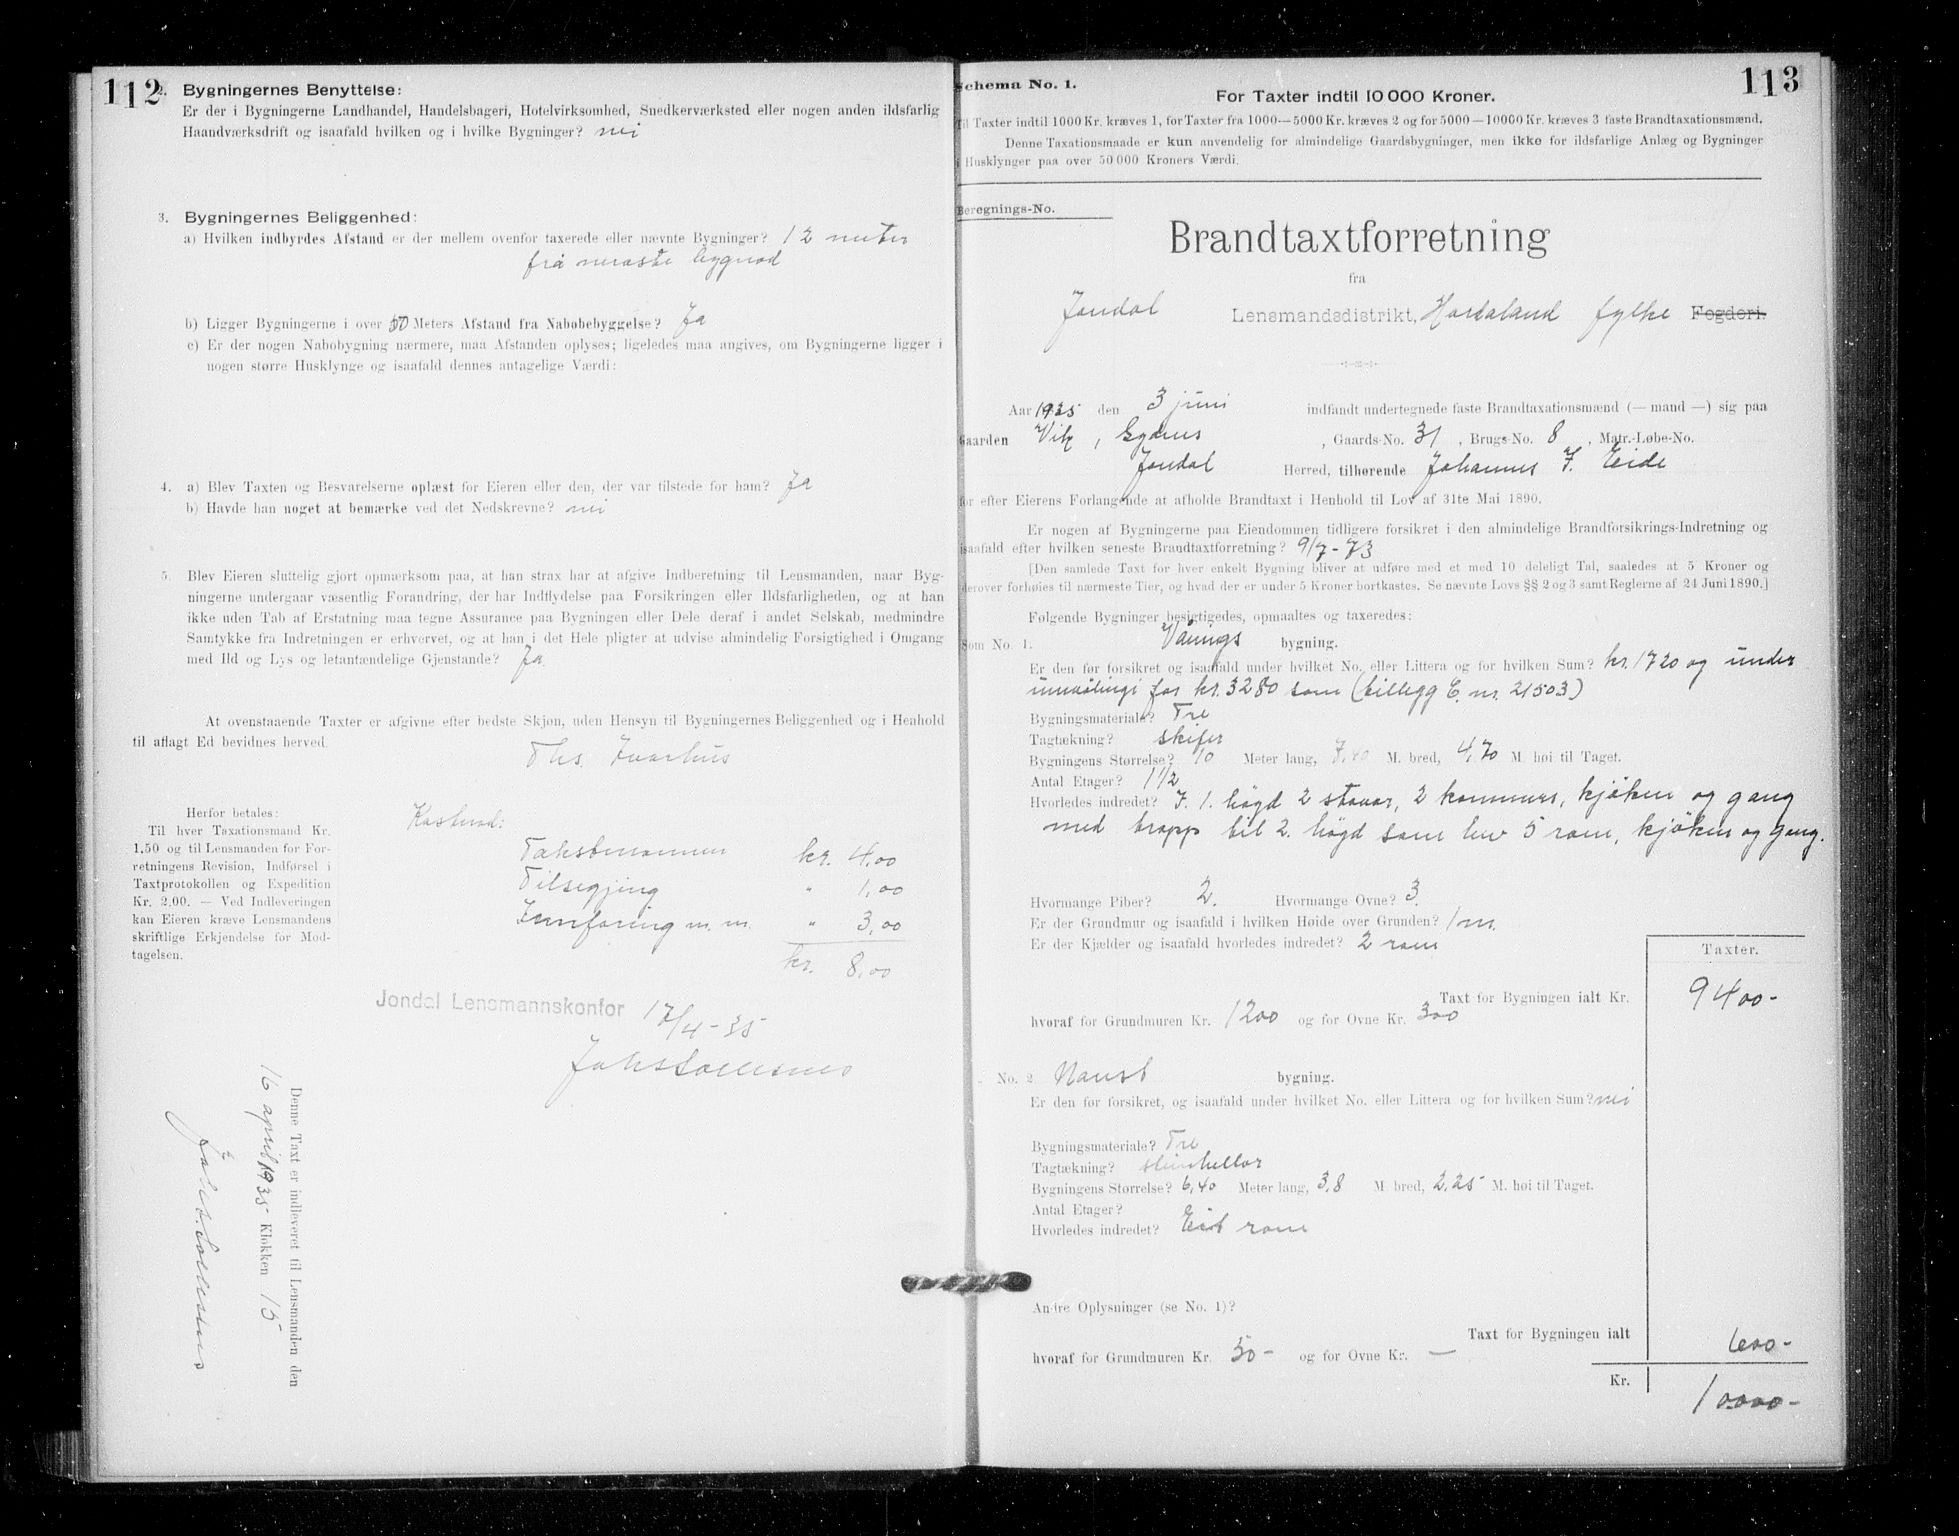 112
2. Bygningernes Benyttelse:
Er der i Bygningerne Landhandel, Handelsbageri, Hotelvirksomhed, Snedkerværksted eller nogen anden ildsfarlig
Haandværksdrift og isaafald hvilken og i hvilke Bygninger? nei
3. Bygningernes Beliggenhed:
a) Hvilken indbyrdes Afstand er der mellem ovenfor taxerede eller nævnte Bygninger? 12 meter
frå næraste bygnad
b) Ligger Bygningerne i over 50 Meters Afstand fra Nabobebyggelse? Ja
c) Er der nogen Nabobygning nærmere, maa Afstanden oplyses; ligeledes maa angives, om Bygningerne ligger i
nogen større Husklynge og isaafald dennes antagelige Værdi:
4. a) Blev Taxten og Besvarelserne oplæst for Eieren eller den, der var tilstede for ham? Ja
b) Havde han noget at bemærke ved det Nedskrevne? nei
5. Blev Eieren sluttelig gjort opmærksom paa, at han strax har at afgive Indberetning til Lensmanden, naar Byg-
ningerne undergaar væsentlig Forandring, der har Indflydelse paa Forsikringen eller Ildsfarligheden, og at han
ikke uden Tab af Erstatning maa tegne Assurance paa Bygningen eller Dele deraf i andet Selskab, medmindre
Samtykke fra Indretningen er erhvervet, og at han i det Hele pligter at udvise almindelig Forsigtighed i Omgang
med Ild og Lys og letantændelige Gjenstande? Ja
At ovenstaaende Taxter er afgivne efter bedste Skjøn, uden Hensyn til Bygningernes Beliggenhed og i Henhold
til aflagt Ed bevidnes herved.
Ths.
Herfor betales:
Til hver Taxationsmand Kr.
1,50 og til Lensmanden for For-
retningens Revision, Indførsel i
Taxtprotokollen og Expedition
Kr. 2,00. — Ved Indleveringen
kan Eieren kræve Lensmandens
skriftlige Erkjendelse for Mod-
tagelsen.
Kostnad:
Takstmannen kr. 4,00
Tilsegjing " 1,00
Innføring m. m. " 3,00
kr. 8,00
Jondal Lensmannskontor 17/4-35
Denne Taxt er indleveret til Lensmanden den
16 april 1935 Klokken 15
113
Schema No. 1.
For Taxter indtil 10 000 Kroner.
Til Taxter indtil 1000 Kr. kræves 1, for Taxter fra 1000—5000 Kr. kræves 2 og for 5000—10000 Kr. kræves 3 faste Brandtaxationsmænd.
Denne Taxationsmaade er kun anvendelig for almindelige Gaardsbygninger, men ikke for ildsfarlige Anlæg og Bygninger
i Husklynger paa over 50 000 Kroners Værdi.
Beregnings-No.
Brandtaxtforretning
fra
Jondal Lensmandsdistrikt, Hordaland fylke Fogderi.
Aar 1935 den 3 juni indfandt undertegnede faste Brandtaxationsmænd (— mand —) sig paa
Gaarden Vik, , Gaards-No. 31, Brugs-No. 8, Matr.-Løbe-No.
Jondal Herred, tilhørende Johannes J. Eide
for efter Eierens Forlangende at afholde Brandtaxt i Henhold til Lov af 31te Mai 1890.
Er nogen af Bygningerne paa Eiendommen tidligere forsikret i den almindelige Brandforsikrings-Indretning og
isaafald efter hvilken seneste Brandtaxtforretning? 9/7-73
[Den samlede Taxt for hver enkelt Bygning bliver at udføre med et med 10 deleligt Tal, saaledes at 5 Kroner og
derover forhøies til nærmeste Tier, og hvad der er under 5 Kroner bortkastes. Se nævnte Lovs §§ 2 og 3 samt Reglerne af 24 Juni 1890.]
Følgende Bygninger besigtigedes, opmaaltes og taxeredes:
Som No. 1. Vånings bygning.
Er den før forsikret og isaafald under hvilket No. eller Littera og for hvilken Sum? kr. 1720 og under
for kr. 3280 som (tillegg E. nr. 21503)
Bygningsmateriale? Tre
Tagtækning? skifer
Bygningens Størrelse? 10 Meter lang, 7,40 M. bred, 4,70 M. høi til Taget.
Antal Etager? 1 1/2
Hvorledes indredet? I. 1. høgd 2 stovor, 2 kommers, kjøken og gang
med tropp til 2. høgd som hev 5 rom, kjøken og gang.
Hvormange Piber? 2. Hvormange Ovne? 3.
Er der Grundmur og isaafald i hvilken Høide over Grunden? 1 m.
Er der Kjælder og isaafald hvorledes indredet? 2 rom
Taxter.
Taxt for Bygningen ialt Kr. 9400-
hvoraf for Grundmuren Kr. 1200 og for Ovne Kr. 300
No. 2. Naust bygning.
Er den før forsikret, og isaafald under hvilket No. eller Littera og for hvilken Sum? nei
Bygningsmateriale? Tre
Tagtækning? steinhellor
Bygningens Størrelse? 6,40 Meter lang, 3,8 M. bred, 2,25 M. høi til Taget.
Antal Etager?
Hvorledes indredet? Eit rom
Andre Oplysninger (se No. 1)?
Taxt for Bygningen ialt 600-
hvoraf for Grundmuren Kr. 50- og for Ovne Kr. —
Kr. 10000-